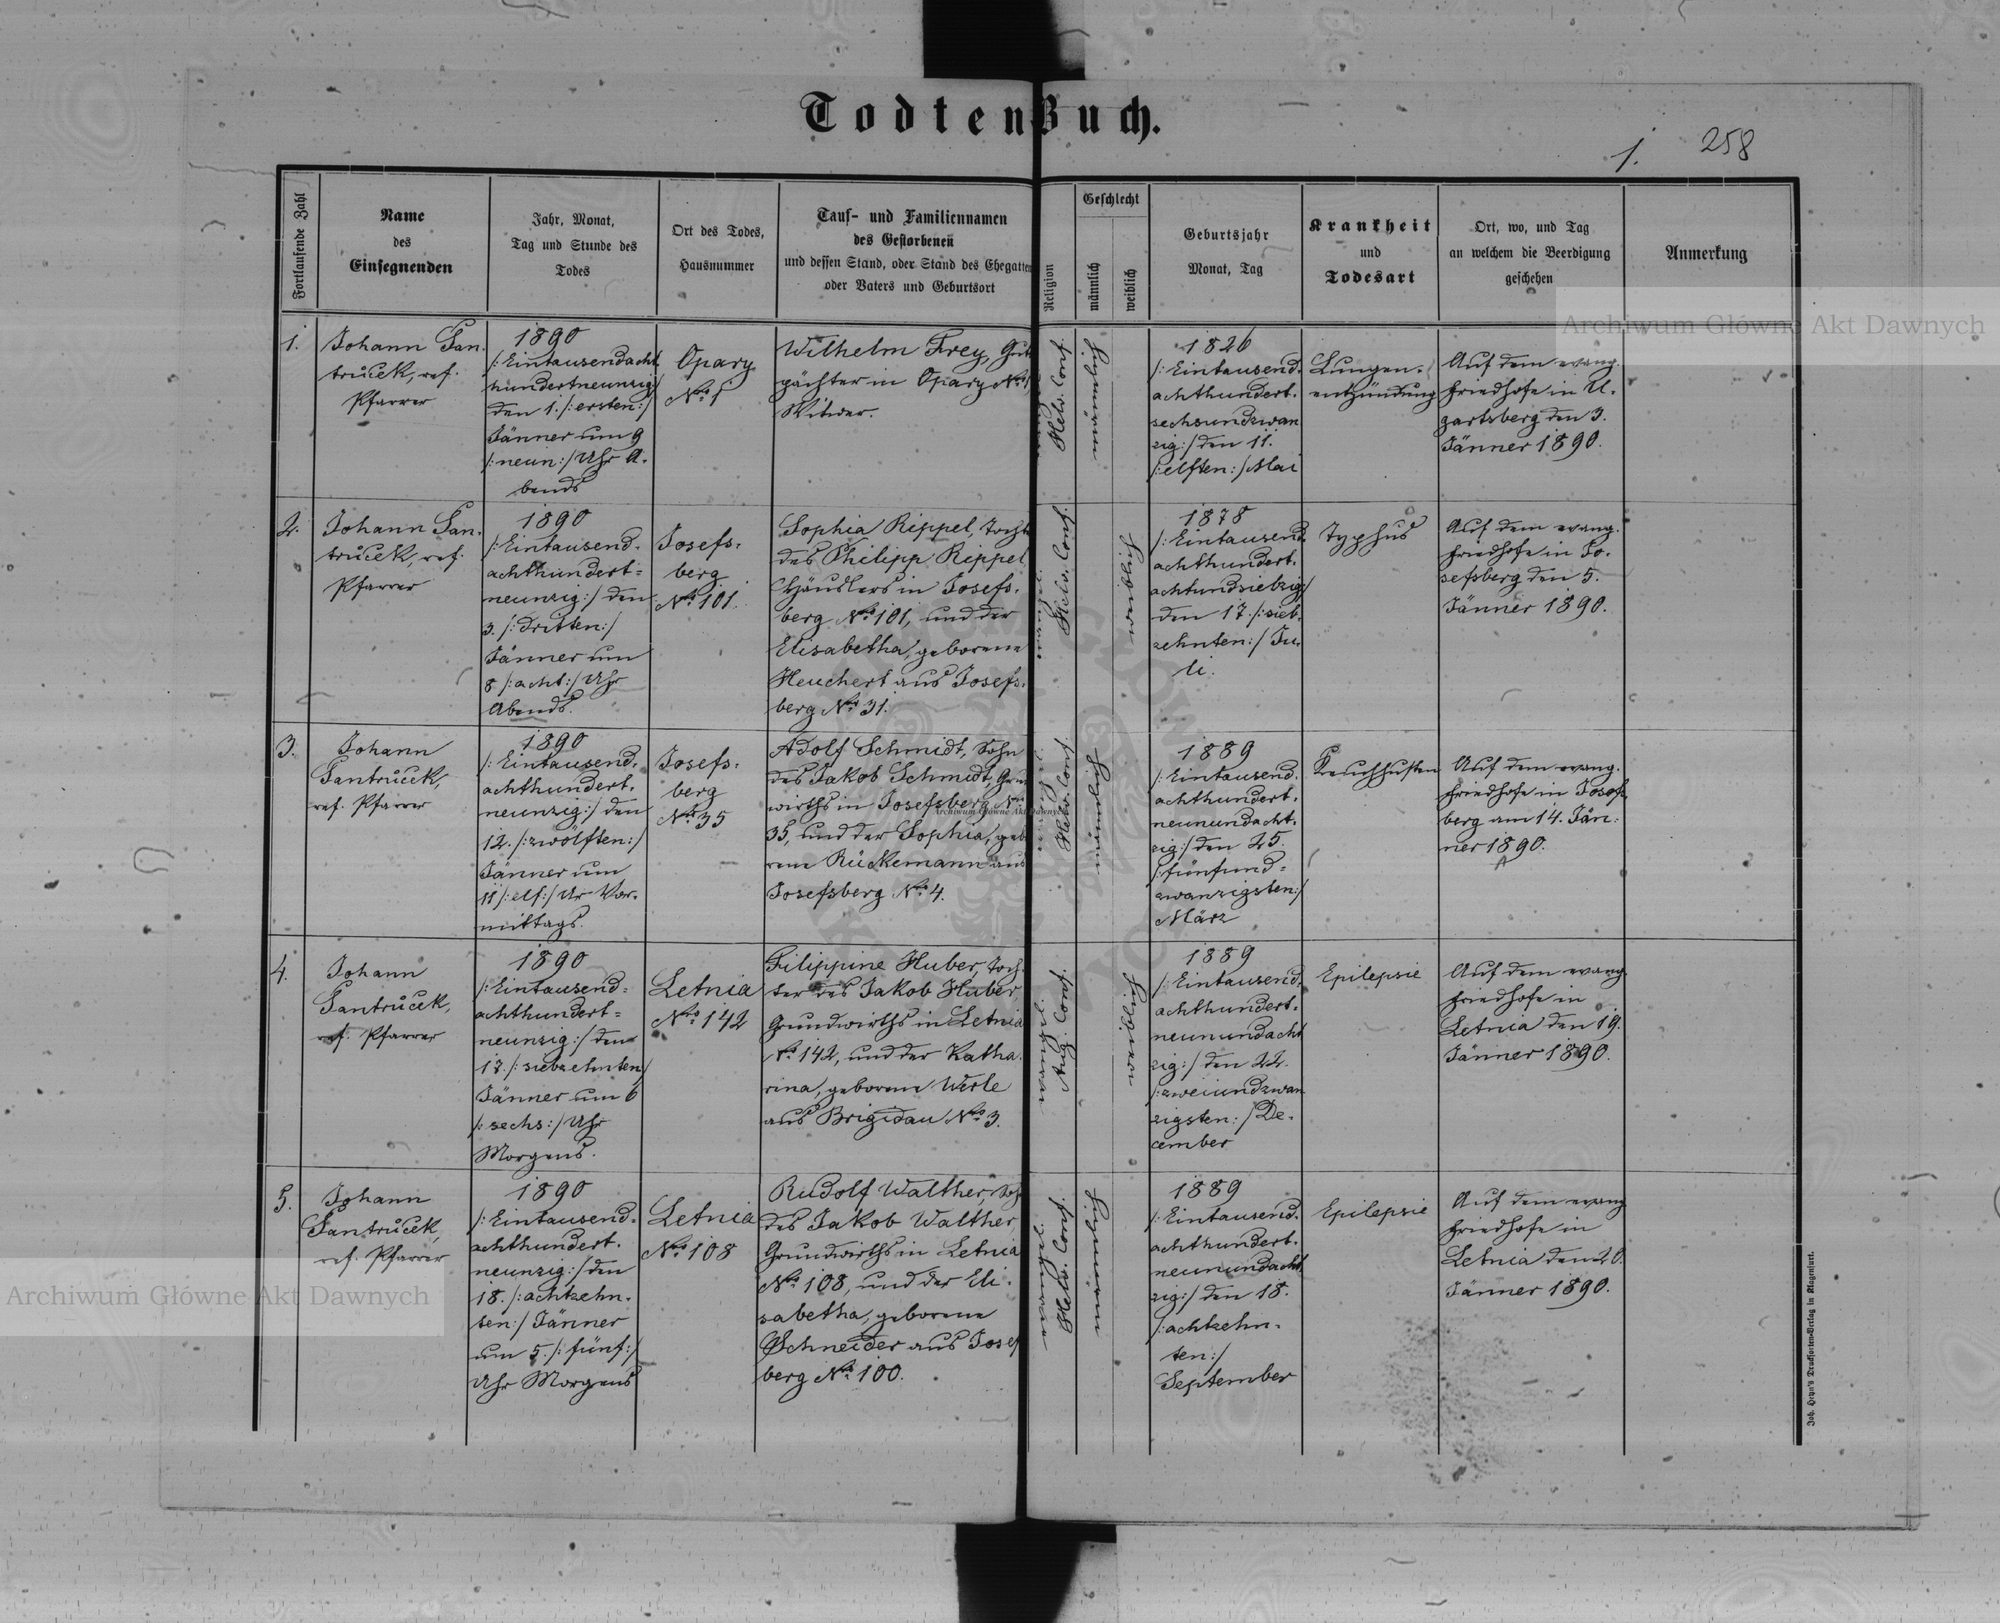 Todten Buch.
1. 258
Fortlaufende Zahl
Name
des
Einsegnenden
Jahr, Monat,
Tag und Stunde des
Todes
Ort des Todes,
Hausnummer
Tauf- und Familiennamen
des Gestorbenen
und dessen Stand, oder Stand des Ehegatten
oder Vaters und Geburtsort
Religion
Geschlecht
männlich
weiblich
Geburtsjahr
Monat, Tag
Krankheit
und
Todesart
Ort, wo, und Tag
an welchem die Beerdigung
geschehen
Anmerkung
1.
Johann Jan-
truček, ref.
Pfarrer
1890
/:Eintausendacht
hundertneunzig:/
den 1. /:ersten:/
Jänner um 9
/:neun:/ Uhr A-
bends
Opary
No. 1
Wilhelm Frey, Guts
pächter in Opary No. 1,
Witwer.
Helv. Conf.
1826
/:Eintausend-
achthundert-
sechsundzwan
zig:/ den 11.
/:elften:/ Mai
Lungen-
entzündung
Auf dem evang.
Friedhofe in U-
gartsberg den 3.
Jänner 1890.
2.
Johann Jan-
truček, ref.
Pfarrer
1890
/:Eintausend-
achthundert-
neunzig:/ den
3. /:dritten:/
Jänner um
8 /:acht:/ Uhr
Abends.
Josefs-
berg
No. 101.
Sophia Rippel, Tocht
des Philipp Rippel
Häuslers in Josefs-
berg No. 101, und der
Elisabetha, geborene
Heuchert aus Josefs-
berg No. 31.
Helv. Conf.
1878
/:Eintausend
achthundert-
achtundsiebzig:/
den 17. /:sieb-
zehnten:/ Ju-
li.
Typhus
Auf dem evang.
Friedhofe in Jo-
sefsberg den 5.
Jänner 1890.
3.
Johann
Jantruček,
ref. Pfarrer
1890
/:Eintausend-
achthundert-
neunzig:/ den
12. /:zwölften:/
Jänner um
11 /:elf:/ Ur Vor-
mittags.
Josefs-
berg
No. 35
Adolf Schmidt, Sohn
des Jakob Schmidt, Grund
wirths in Josefsberg No.
35, und der Sophia, gebo
rene Rückemann aus
Josefsberg No. 4.
Helv. Conf.
1889
/:Eintausend-
achthundert-
neunundacht-
zig:/ den 25.
/:fünfund-
zwanzigsten:/
März
Keuchhusten
Auf dem evang.
Friedhofe in Josefs
berg am 14. Jän-
ner 1890.
4.
Johann
Jantruček,
ref. Pfarrer
1890
/:Eintausend-
achthundert-
neunzig:/ den
17. /:siebzehnten:/
Jänner um 6
/:sechs:/ Uhr
Morgens.
Letnia
No. 142
Filippine Huber, Toch-
ter des Jakob Huber
Grundwirths in Letnia
No. 142, und der Katha-
rina, geborene Werle
aus Brigidau No. 3.
Aug. Conf.
1889
/:Eintausend-
achthundert-
neunundacht
zig:/ den 22.
/:zweiundzwan
zigsten:/ De-
cember
Epilepsie
Auf dem evang.
Friedhofe in
Letnia den 19.
Jänner 1890.
5.
Johann
Jantruček,
ref. Pfarrer
1890
/:Eintausend-
achthundert-
neunzig:/ den
18. /:achtzehn-
ten:/ Jänner
um 5 /:fünf:/
Uhr Morgens
Letnia
No. 108
Rudolf Walther, Sohn
des Jakob Walther,
Grundwirths in Letnia
No. 108, und der Eli-
sabetha, geborene
Schneider aus Josef
berg No. 100.
Helv. Conf.
1889
/:Eintausend-
achthundert-
neunundacht
zig:/ den 18.
/:achtzehn-
ten:/
September
Epilepsie
Auf dem evang.
Friedhofe in
Letnia den 20.
Jänner 1890.
Joh. Heyn's Drucksorten-Verlag in Klagenfurt.
Archiwum Główne Akt Dawnych
Archiwum Główne Akt Dawnych
Archiwum Główne Akt Dawnych